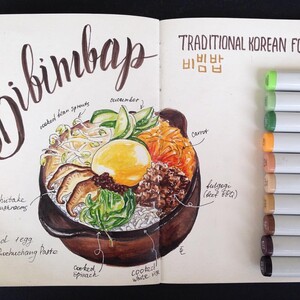 Bibimbap
TRADITIONAL KOREAN FO
비빔밥
cooked bean sprouts
cucumber
carrot
bulgogi
(beef BBQ)
shiitake
mushrooms
egg
Gochuchang Paste
Cooked
Spinach
COOKED
WHITE RICE